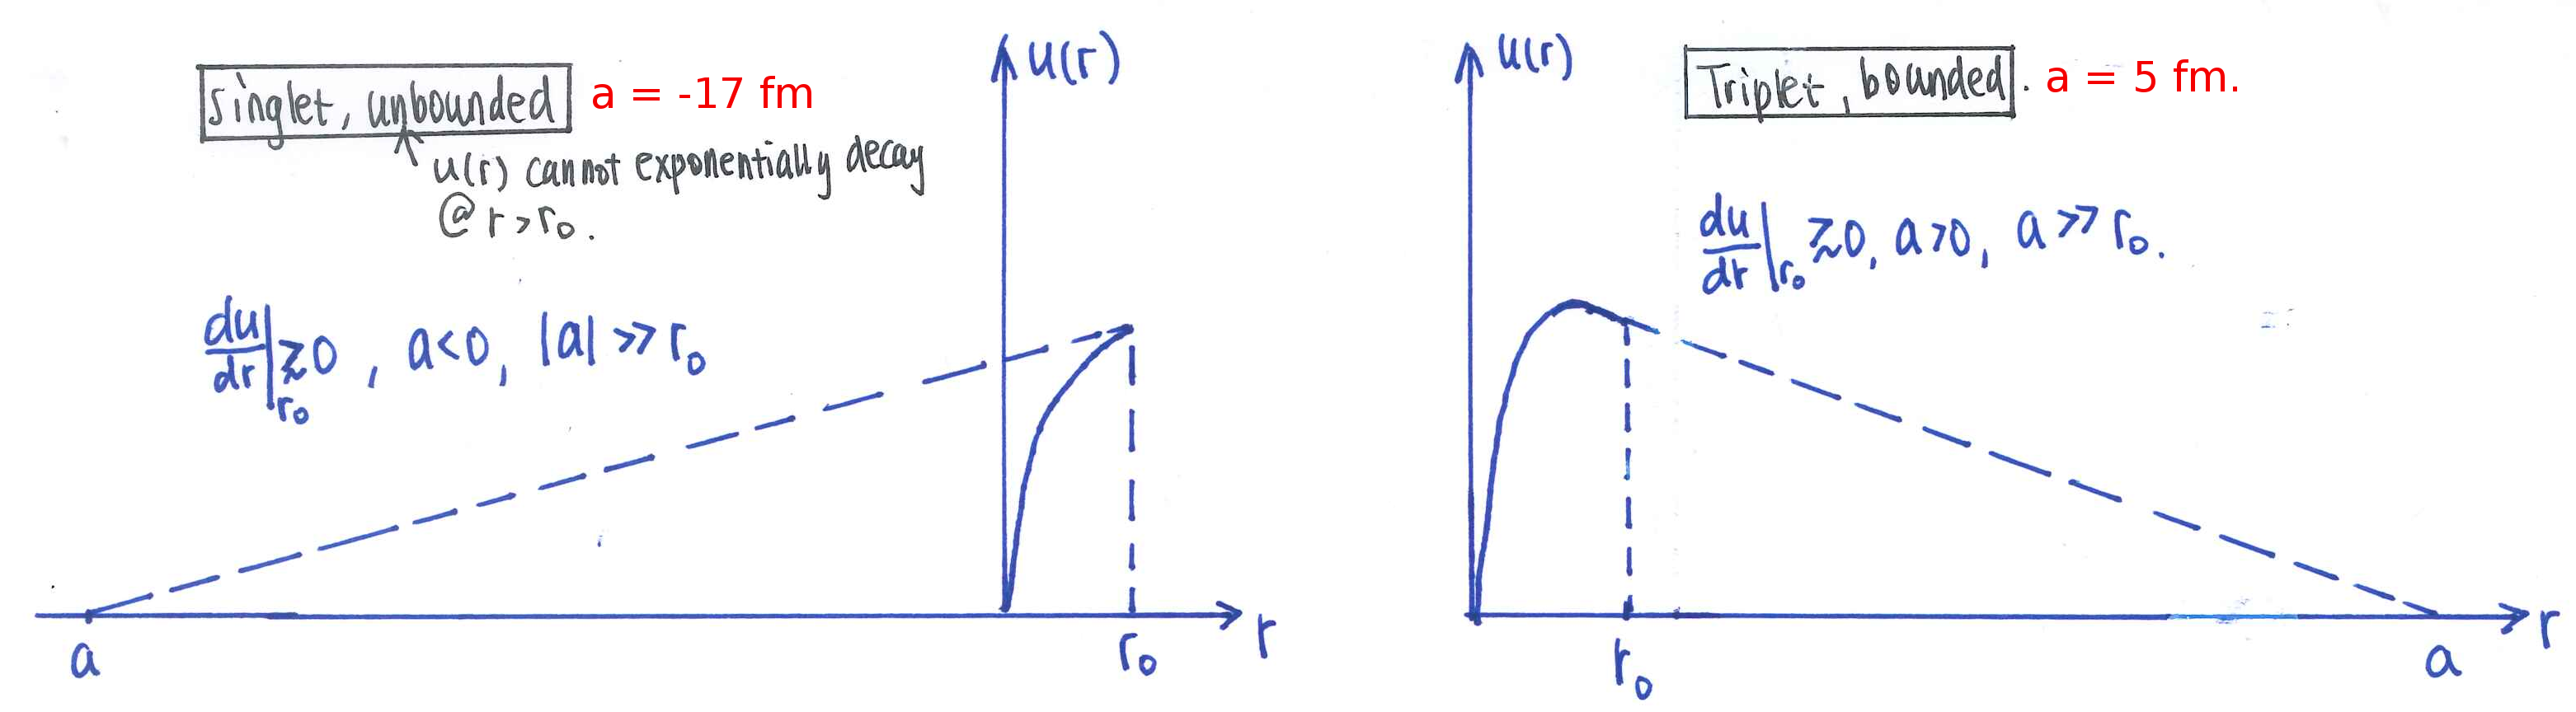 Singlet, unbounded a = -17 fm
u(r) cannot exponentially decay
@ r > r₀.
du/dr|r₀ ≳ 0 , a<0, |a| >> r₀
u(r)
a
r₀
r
u(r)
Triplet, bounded. a = 5 fm.
du/dr|r₀ ≳ 0, a>0, a >> r₀.
r₀
a
r